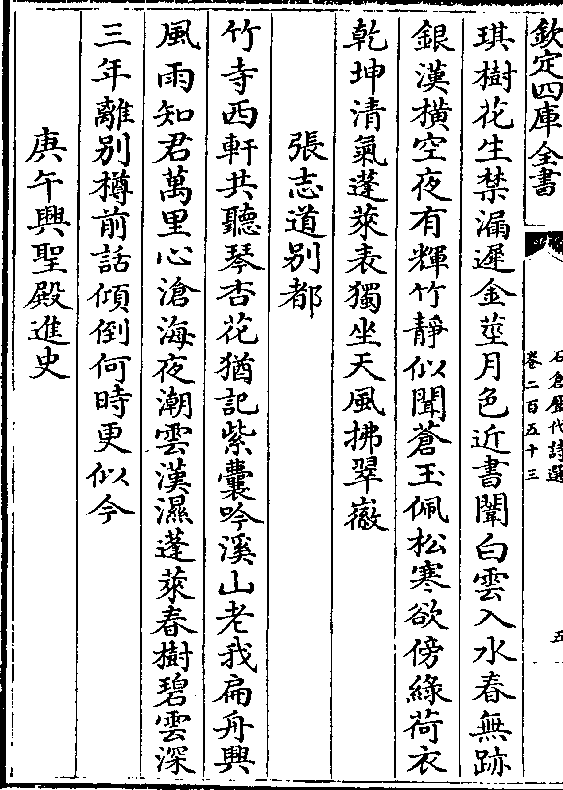 欽定四庫全書
石倉歷代詩選
卷二百五十三
五
琪樹花生禁漏遲金莖月色近書闈白雲入水春無跡
銀漢橫空夜有輝竹靜似聞蒼玉佩松寒欲傍綠荷衣
乾坤清氣蓬萊表獨坐天風拂翠㣲
張志道别都
竹寺西軒共聽琴杏花猶記紫囊吟溪山老我扁舟興
風雨知君萬里心滄海夜潮雲漢濕蓬萊春樹碧雲深
三年離别樽前話傾倒何時更似今
庚午興聖殿進史